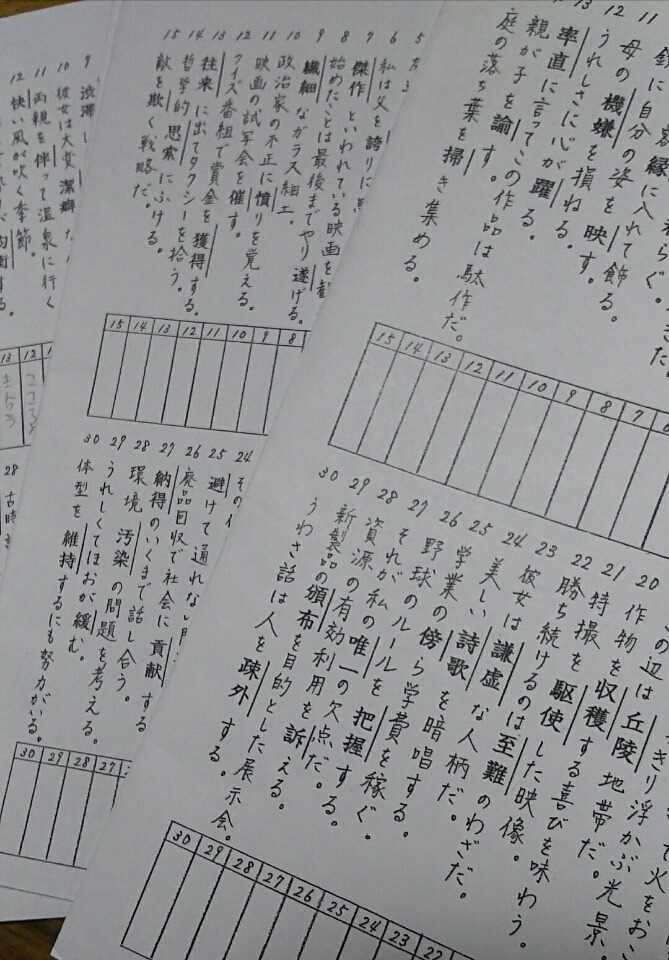 て火をおこ
っきり浮かぶ光景。
この辺は丘陵地帯だ。
20 作物を収穫する喜びを味わう。
21 特撮を駆使した映像。
22 勝ち続けるのは至難のわざだ。
23 彼女は謙虚な人柄だ。
24 美しい詩歌を暗唱する。
25 学業の傍ら学費を稼ぐ。
26 野球のルールを把握する。
27 それが私の唯一の欠点だ。
28 資源の有効利用を訴える。
29 新製品の頒布を目的とした展示会。
30 うわさ話は人を疎外する。
和らぐ。
額縁に入れて飾る。
11 自分の姿を映す。
12 母の機嫌を損ねる。
13 うれしさに心が躍る。
率直に言ってこの作品は駄作だ。
親が子を諭す。
庭の落ち葉を掃き集める。
15 14 13 12 11 10 9 8 7 6
30 29 28 27 26 25 24 23 22
5
6 私は父を誇りに
7 傑作といわれている映画を
8 始めたことは最後までやり遂げる。
9 繊細なガラス細工。
10 政治家の不正に憤りを覚える。
11 映画の試写会を催す。
12 クイズ番組で賞金を獲得する。
13 往来に出てタクシーを拾う。
14 哲学的思索にふける。
15 敵を欺く戦略だ。
15 14 13 12 11 10 9 8
24 その
25 避けて通れない
26 廃品回収で社会に貢献する
27 納得のいくまで話し合う。
28 環境汚染の問題を考える。
29 うれしくてほおが緩む。
30 体型を維持するにも努力がいる。
30 29 28 27
9 渋滞し
10 彼女は大変潔癖だ
11 両親を伴って温泉に行く
12 快い風が吹く季節。
均衡する。
13 12
こころよ
きんこう
28